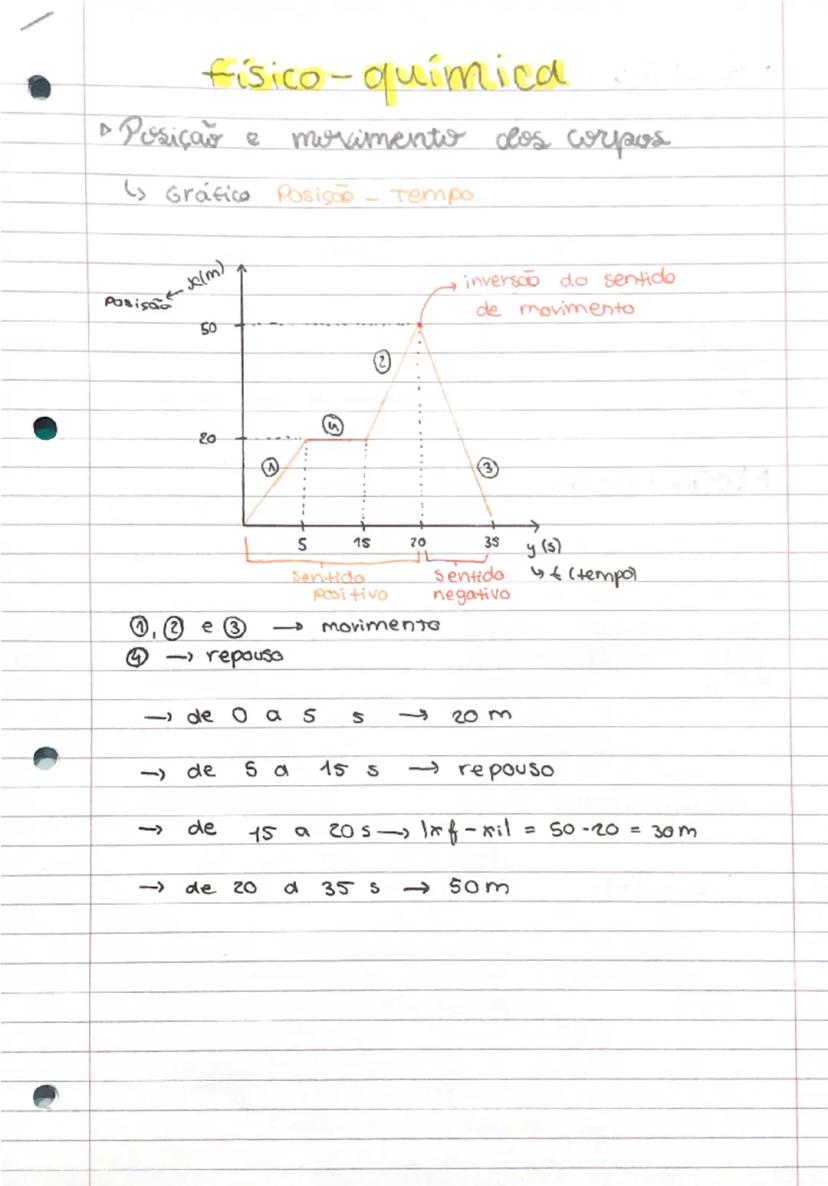 físico-química
▹ Posição e movimento dos corpos
↳ Gráfico Posição - Tempo
x(m)
Posição ←
→ inversão do sentido
de movimento
50
②
20
④
①
③
5 15 20 35 y (s)
↳ t (tempo)
Sentido
positivo
Sentido
negativo
①, ② e ③ → movimento
④ → repouso
→ de 0 a 5 s → 20 m
→ de 5 a 15 s → repouso
→ de 15 a 20 s → |xf - xi| = 50-20 = 30m
→ de 20 a 35 s → 50m